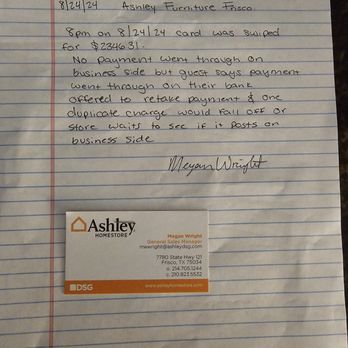 8/24/24 Ashley Furniture Frisco
8pm on 8/24/24 card was swiped
for $2346.31.
No payment went through on
business side but guest says payment
went through on their bank
offered to retake payment & one
duplicate charge would fall off or
store waits to see if it posts on
business side
Megan Wright
Ashley
HOMESTORE
Megan Wright
General Sales Manager
mewright@ashleydsg.com
7780 State Hwy 121
Frisco, TX 75034
o: 214.705.1244
c: 210.823.5532
DSG
www.ashleyhomestore.com